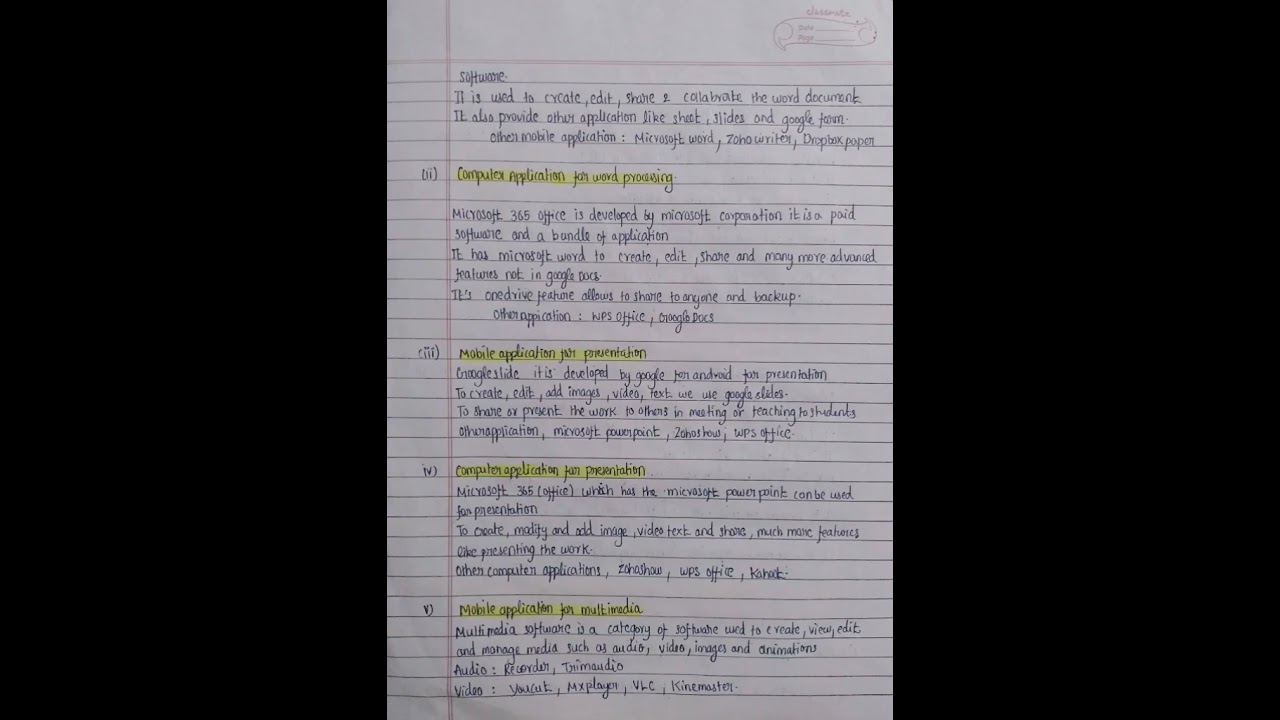 classmate
Date
Page
software.
It is used to create, edit, share & collabrate the word document
It also provide other application like sheet, slides and google form.
Other mobile application : Microsoft word, Zoho writer, Dropbox paper
(ii) Computer Application for word processing.
Microsoft 365 office is developed by microsoft corporation it is a paid
software and a bundle of application
It has microsoft word to create, edit, share and many more advanced
features not in google Docs.
It's onedrive feature allows to share to anyone and backup.
Other appication : WPS office, Google Docs
(iii) Mobile application for presentation
Google slide it is developed by google for android for presentation
To create, edit, add images, video, text we use google slides.
To share or present the work to others in meeting or teaching to students
Other application, microsoft powerpoint, Zoho show, WPS office.
iv) Computer application for presentation
Microsoft 365 (office) which has the microsoft power point can be used
for presentation
To create, modify and add image, video text and share, much more features
like presenting the work.
Other computer applications, Zoho show, WPS office, Kahoot.
v) Mobile application for multimedia
Multimedia software is a category of software used to create, view, edit
and manage media such as audio, video, images and animations
Audio : Recorder, Trimaudio
Video : Youcut, Mxplayer, VLC, Kinemaster.